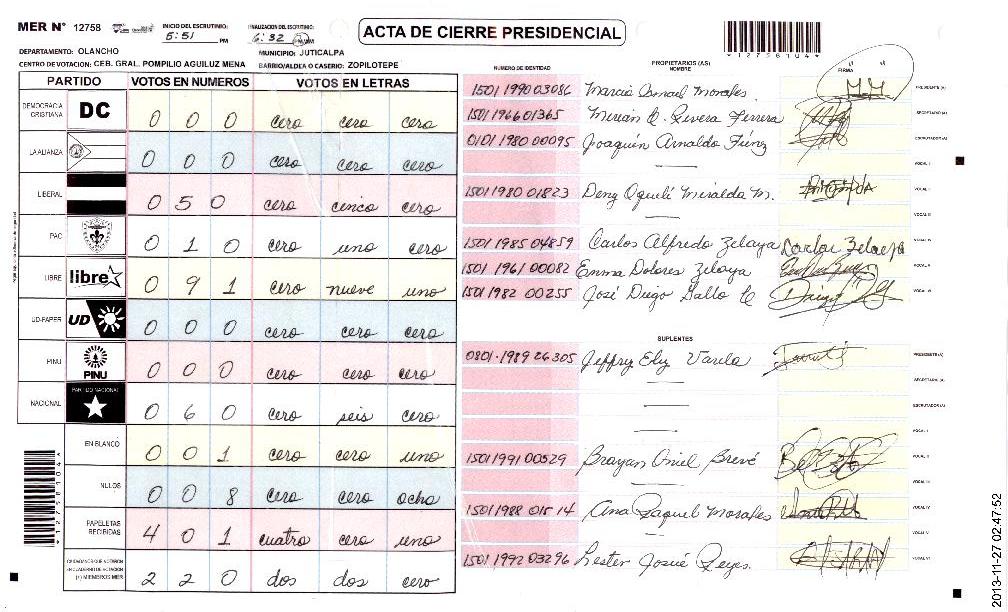 MER N° 12758
INICIO DEL ESCRUTINIO: 5:51 PM
FINALIZACION DEL ESCRUTINIO: 6:32
ACTA DE CIERRE PRESIDENCIAL
*12758104*
DEPARTAMENTO: OLANCHO
MUNICIPIO: JUTICALPA
CENTRO DE VOTACION: CEB. GRAL. POMPILIO AGUILUZ MENA BARRIO/ALDEA O CASERIO: ZOPILOTEPE
PARTIDO VOTOS EN NUMEROS VOTOS EN LETRAS
DEMOCRACIA CRISTIANA DC 0 0 0 cero cero cero
LA ALIANZA 0 0 0 cero cero cero
LIBERAL 0 5 0 cero cinco cero
PAC 0 1 0 cero uno cero
LIBRE libre 0 9 1 cero nueve uno
UD-FAPER UD 0 0 0 cero cero cero
PINU PINU 0 0 0 cero cero cero
NACIONAL PARTIDO NACIONAL 0 6 0 cero seis cero
EN BLANCO 0 0 1 cero cero uno
NULOS 0 0 8 cero cero ocho
PAPELETAS RECIBIDAS 4 0 1 cuatro cero uno
CIUDADANOS QUE VOTARON EN CUADERNO DE VOTACION (+) MIEMBROS MER 2 2 0 dos dos cero
*12758104*
NUMERO DE IDENTIDAD PROPIETARIOS (AS) NOMBRE FIRMA
1501 1990 03086 Marcio Ismael Morales PRESIDENTE (A)
1501 1966 01365 Mirian Rivera Ferrera SECRETARIO (A)
0101 1980 00095 Joaquín Arnaldo ESCRUTADOR (A)
VOCAL I
1501 1980 01823 Miralda M. VOCAL II
VOCAL III
1501 1985 04859 Carlos Alfredo Zelaya Carlos Zelaya VOCAL IV
1501 1961 00082 Emma Dolores Zelaya VOCAL V
1501 1982 00255 José Diego VOCAL VI
SUPLENTES
0801-1989 26305 Jeffry Ely Varela PRESIDENTE (A)
SECRETARIO (A)
ESCRUTADOR (A)
VOCAL I
1501 1991 00529 Brayan Oniel Brevé VOCAL II
VOCAL III
1501 1988 01514 Ana Raquel Morales VOCAL IV
VOCAL V
1501 1992 03296 Lester Josué Reyes. VOCAL VI
2013-11-27 02:47:52